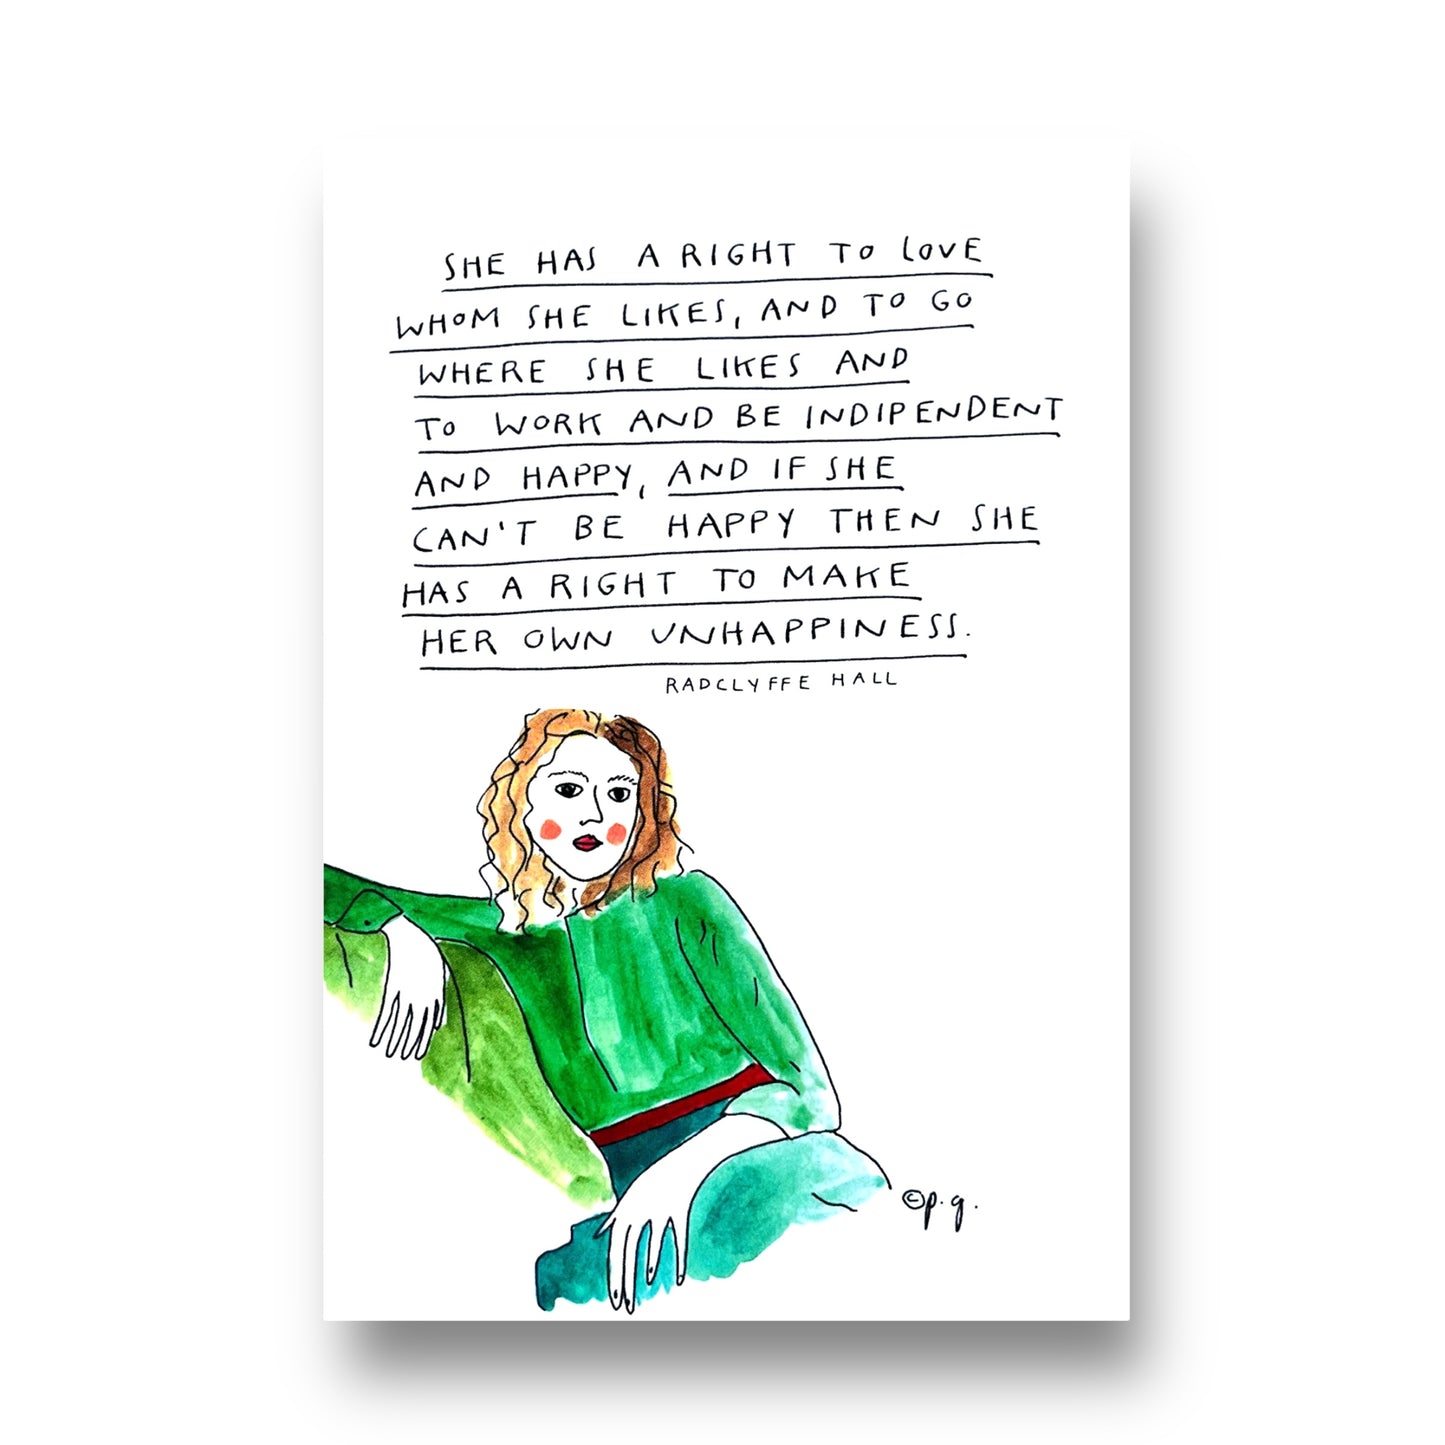 SHE HAS A RIGHT TO LOVE
WHOM SHE LIKES, AND TO GO
WHERE SHE LIKES AND
TO WORK AND BE INDIPENDENT
AND HAPPY, AND IF SHE
CAN'T BE HAPPY THEN SHE
HAS A RIGHT TO MAKE
HER OWN UNHAPPINESS.
RADCLYFFE HALL
©p.g.